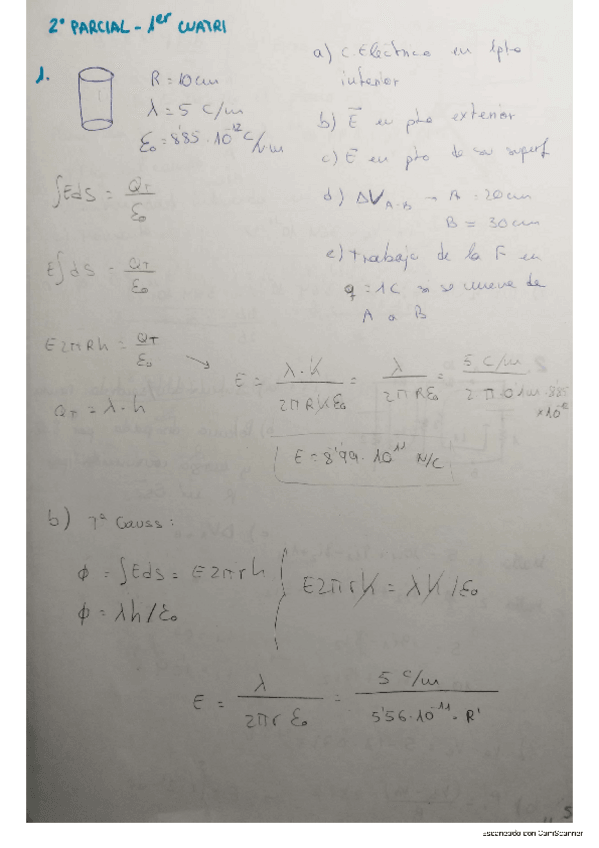 2º PARCIAL - 1er CUATRI
1.
R = 10cm
λ = 5 C/m
ε₀ = 8'85 · 10⁻¹² C/N·m
a) C. Eléctrico en 1pto
interior
b) E⃗ en pto exterior
c) E en pto de su superf
d) ΔV A-B → A = 20cm
B = 30cm
e) trabajo de la F en
q = 1C si se mueve de
A a B
∫EdS = QT/ε₀
E∫dS = QT/ε₀
E2πRh = QT/ε₀
QT = λ · h
E = λ·h/2πRhε₀ = λ/2πRε₀ = 5 C/m / 2π·0'1m·8'85×10⁻¹²
E = 8'99 · 10¹¹ N/C
b) Tª Gauss:
ϕ = ∫EdS = E2πrh
ϕ = λh/ε₀
E2πrh = λh/ε₀
E = λ/2πrε₀ = 5 C/m / 5'56·10⁻¹¹ · R'
Escaneado con CamScanner